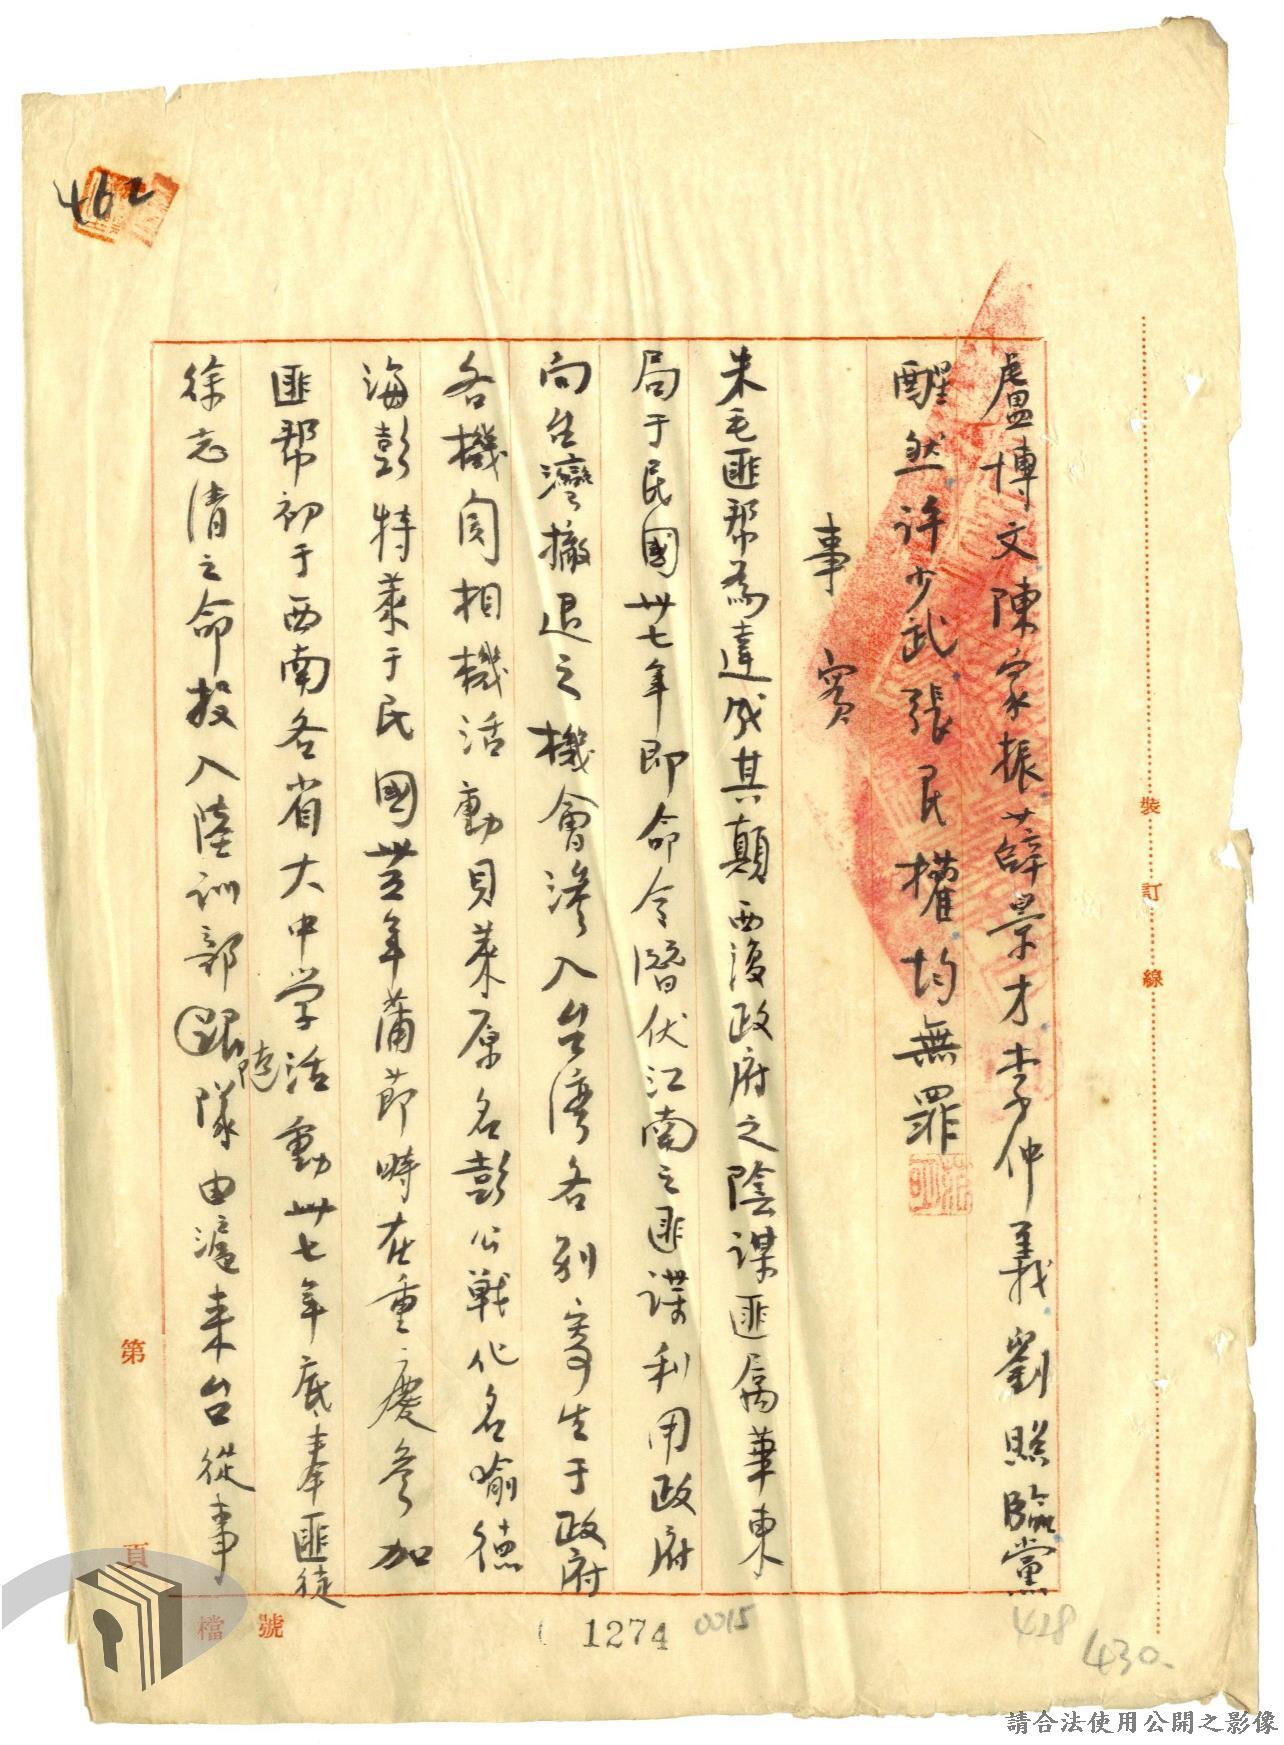 盧博文陳家振薛景才李仲義劉照臨黨
醒然許少武張民權均無罪
事實
朱毛匪幫為達成其顛覆政府之陰謀匪屬華東
局于民國卅七年即命令潛伏江南之匪諜利用政府
向台灣撤退之機會滲入台湾各別寄生于政府
各機関相機活動貝萊原名彭公戰化名喻德
海彭特萊于民國卅五年蒲節時在重慶參加
匪幫初于西南各省大中学活動卅七年底奉匪徒
徐志清之命投入陸訓部跟隨隊由滬来台從事
462
裝訂線
第
頁
檔號
1274
0015
428
430
請合法使用公開之影像